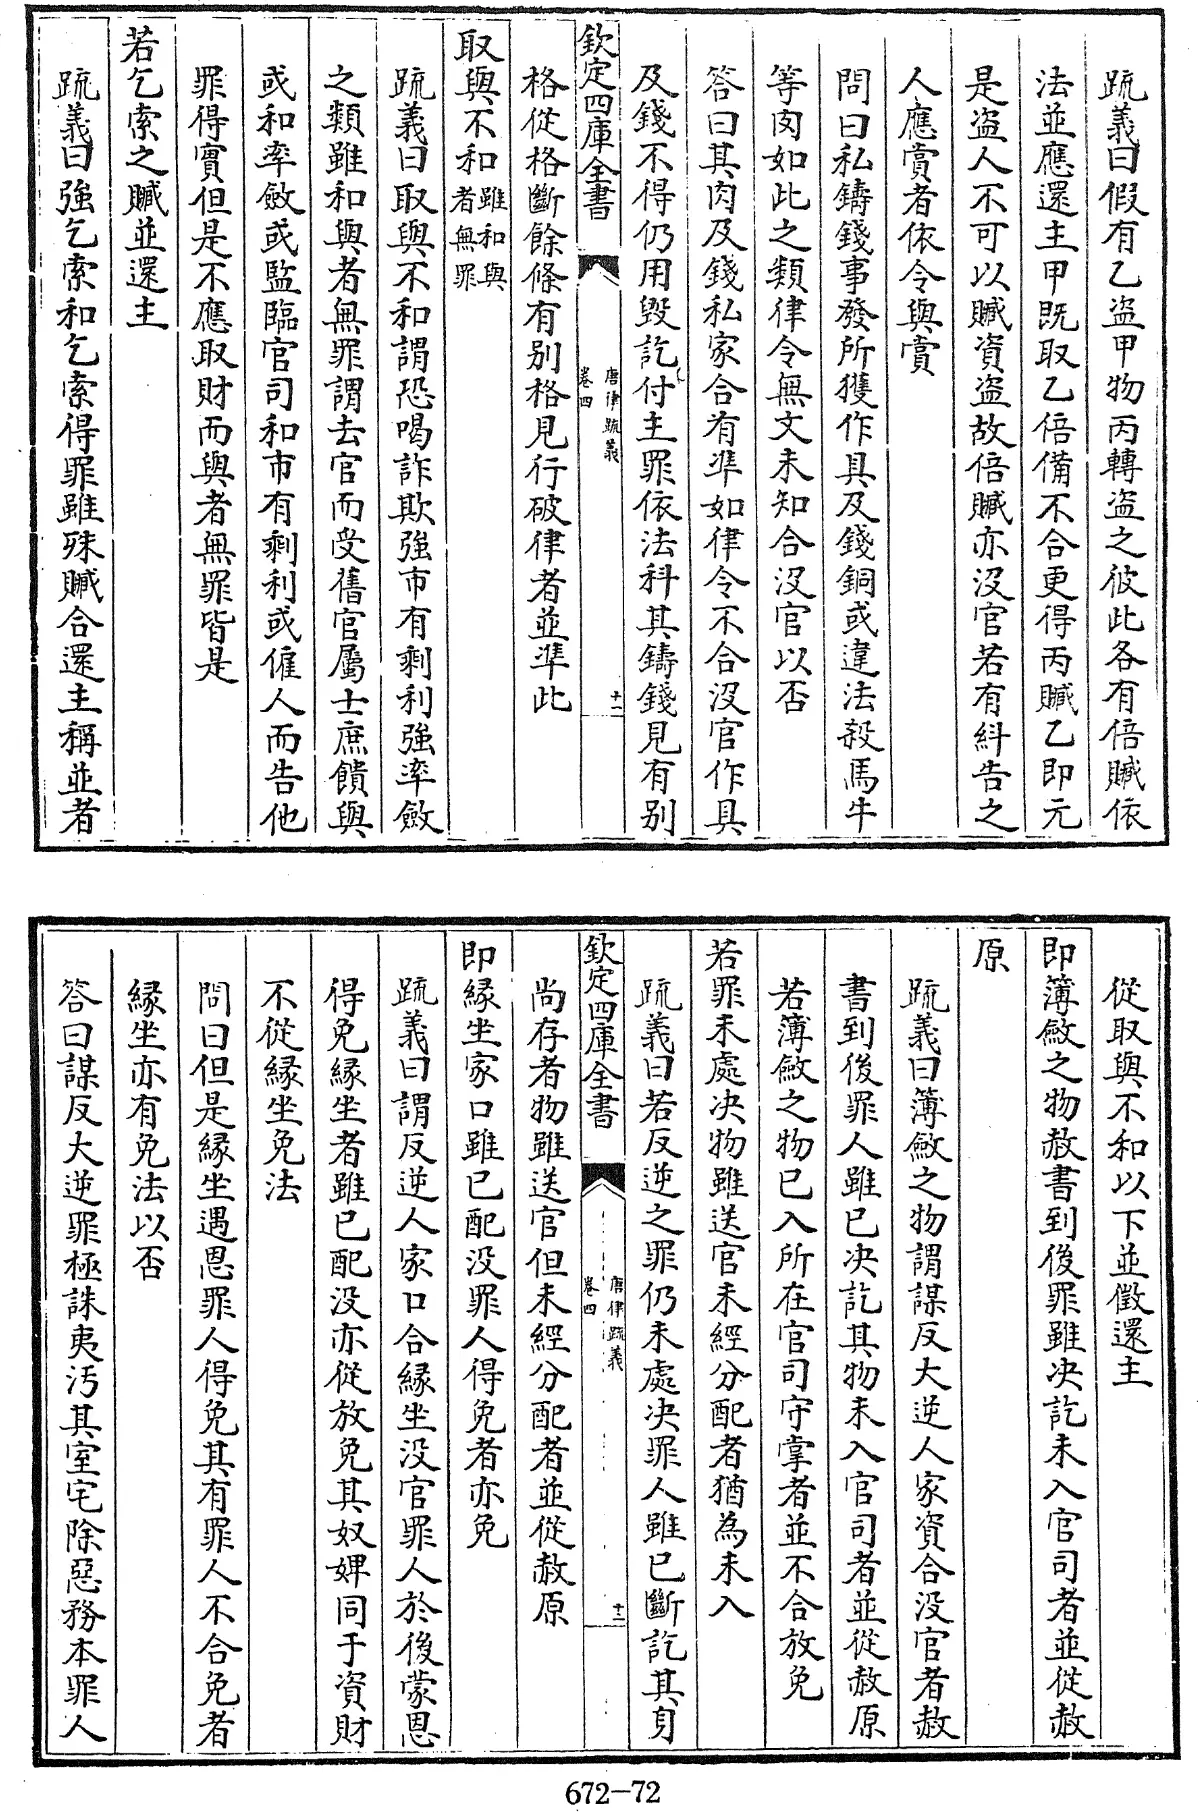 疏義曰假有乙盗甲物丙轉盗之彼此各有倍贓依
法並應還主甲既取乙倍備不合更得丙贓乙即元
是盗人不可以贓資盗故倍贓亦沒官若有糾告之
人應賞者依令與賞
問曰私鑄錢事發所獲作具及錢銅或違法殺馬牛
等肉如此之類律令無文未知合沒官以否
答曰其肉及錢私家合有凖如律令不合沒官作具
及錢不得仍用毀訖付主罪依法科其鑄錢見有别
欽定四庫全書
唐律疏義
卷四
十一
格從格斷餘條有别格見行破律者並凖此
取與不和雖和與者無罪
疏義曰取與不和謂恐喝詐欺強市有剩利強率斂
之類雖和與者無罪謂去官而受舊官屬士庶饋與
或和率斂或監臨官司和市有剩利或僱人而告他
罪得實但是不應取財而與者無罪皆是
若乞索之贓並還主
疏義曰強乞索和乞索得罪雖殊贓合還主稱並者
從取與不和以下並徵還主
即簿斂之物赦書到後罪雖决訖未入官司者並從赦
原
疏義曰簿斂之物謂謀反大逆人家資合没官者赦
書到後罪人雖已决訖其物未入官司者並從赦原
若簿斂之物已入所在官司守掌者並不合放免
若罪未處决物雖送官未經分配者猶為未入
疏義曰若反逆之罪仍未處决罪人雖已斷訖其身
欽定四庫全書
唐律疏義
卷四
十二
尚存者物雖送官但未經分配者並從赦原
即緣坐家口雖已配没罪人得免者亦免
疏義曰謂反逆人家口合緣坐没官罪人於後蒙恩
得免緣坐者雖已配没亦從放免其奴婢同于資財
不從緣坐免法
問曰但是緣坐遇恩罪人得免其有罪人不合免者
緣坐亦有免法以否
答曰謀反大逆罪極誅夷汚其室宅除惡務本罪人
672-72